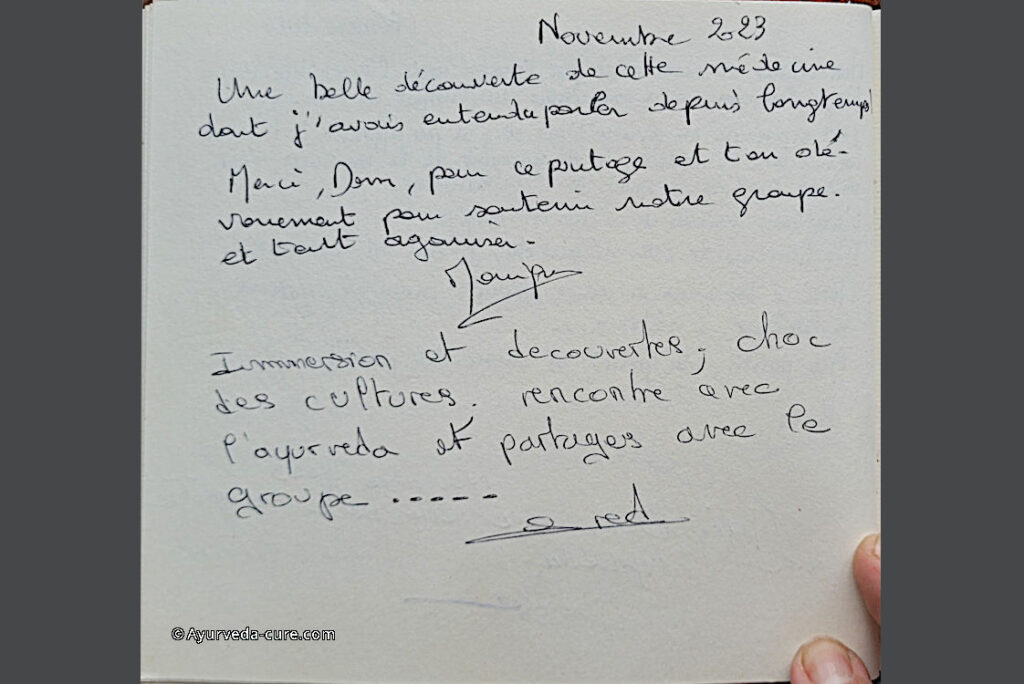 Novembre 2023
Une belle découverte de cette médecine
dont j'avais entendu parler depuis longtemps!
Merci, Dom, pour ce partage et ton dé-
vouement pour soutenir notre groupe.
et tout organiser.
Monique
Immersion et decouvertes, choc
des cultures. rencontre avec
l'ayurveda et partages avec le
groupe .....
©Ayurveda-cure.com